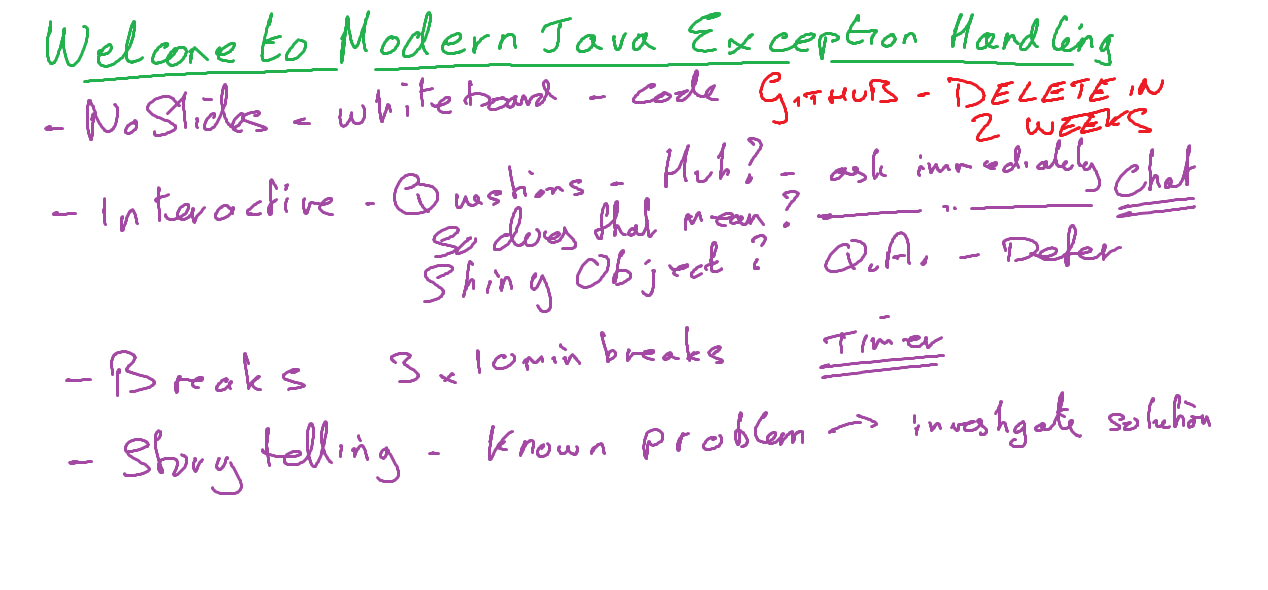 Welcome to Modern Java Exception Handling
- No Slides - whiteboard - code GITHUB - DELETE IN
2 WEEKS
- Interactive - Questions - Huh? - ask immediately Chat
So does that mean? ——— " ———
String Object? Q.A. - Defer
- Breaks 3 x 10 min breaks Timer
- Story telling - Known problem -> investigate solution